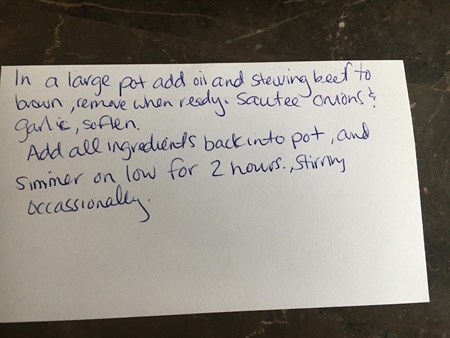 In a large pot add oil and stewing beef to
brown, remove when ready. Sautee onions &
garlic, soften.
Add all ingredients back into pot, and
simmer on low for 2 hours., stirring
occassionally.